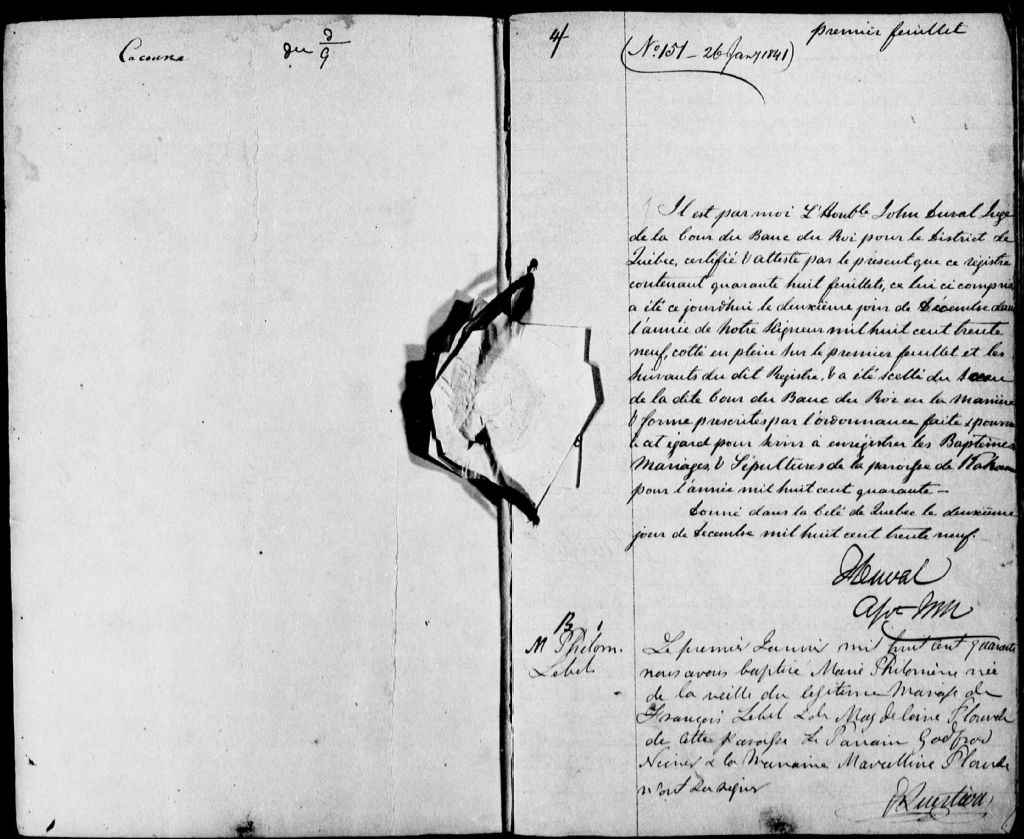 Cacouna
du 8/9
4
premier feuillet
(No. 151 - 26 Janv 1841)
Il est par moi L'Honble John Duval Juge
de la Cour du Banc du Roi pour le District de
Québec, certifié & attesté par le présent que ce régistre
contenant quarante huit feuillets, ce lui ci compris,
a été ce jourd'hui le deuxième jour de Décembre dans
l'année de Notre Seigneur mil huit cent trente
neuf, cotté en plein sur le premier feuillet et les
suivants du dit Registre, & a été scellé du Sceau
de la dite Cour du Banc du Roi en la Manière
& forme prescrites par l'ordonnance faite & pourvue
à cet égard pour servir à enrégistrer les Baptêmes
Mariages, & Sépultures de la paroisse de
pour l'année mil huit cent quarante —
Donné dans la Cité de Québec le deuxième
jour de Decembre mil huit cent trente neuf.
JDuval
B. 1
M Philom.
Lebel
Le premier Janvier mil huit cent quarante
nous avons baptisé Marie Philomène née
de la veille du légitime Mariage de
François Lebel & de Magdelaine Plourde
de cette paroisse Le Parrain Godfroi
& la Marraine Marcelline Plourde
n'ont su signer